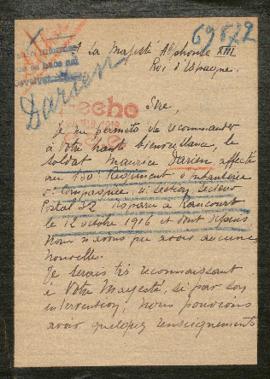 69672
A Sa Majesté Alphonse XIII
Roi d'Espagne.
Darien
Sire,
Je me permets de recommander
à votre haute bienveillance, le
soldat Maurice Darien affecté
au 130e Régiment d'infanterie
Secteur
Postal 22 disparu à Rancourt
le 12 octobre 1916 et dont depuis
nous n'avons pu avoir aucunes
nouvelles.
Je serais très reconnaissant
à Votre Majesté, si par son
intervention, nous pouvions
avoir quelques renseignements